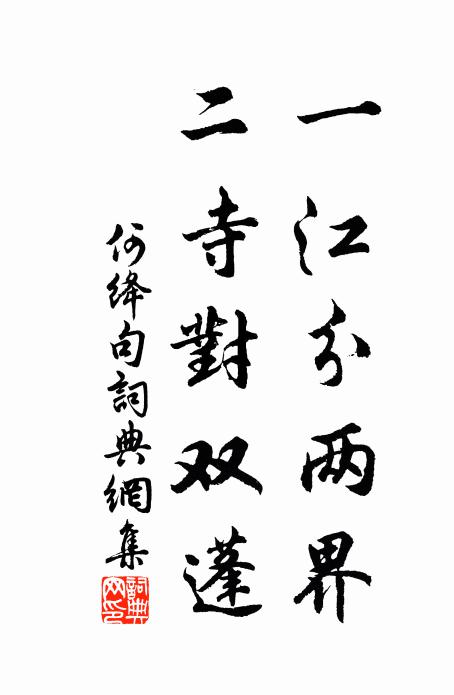 一江分两界
二寺對双蓬
何絳句詞典網集
詞典网印